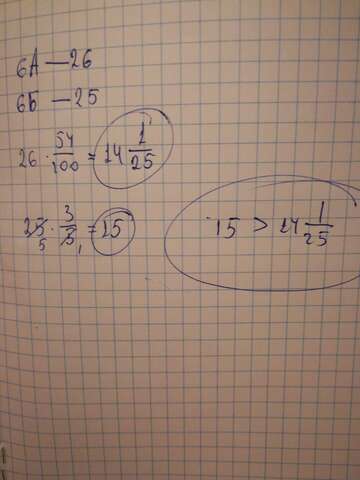 6А — 26
6Б — 25
26 · 54/100 = 14 1/25
25 · 3/5 = 15
5 1
15 > 14 1/25